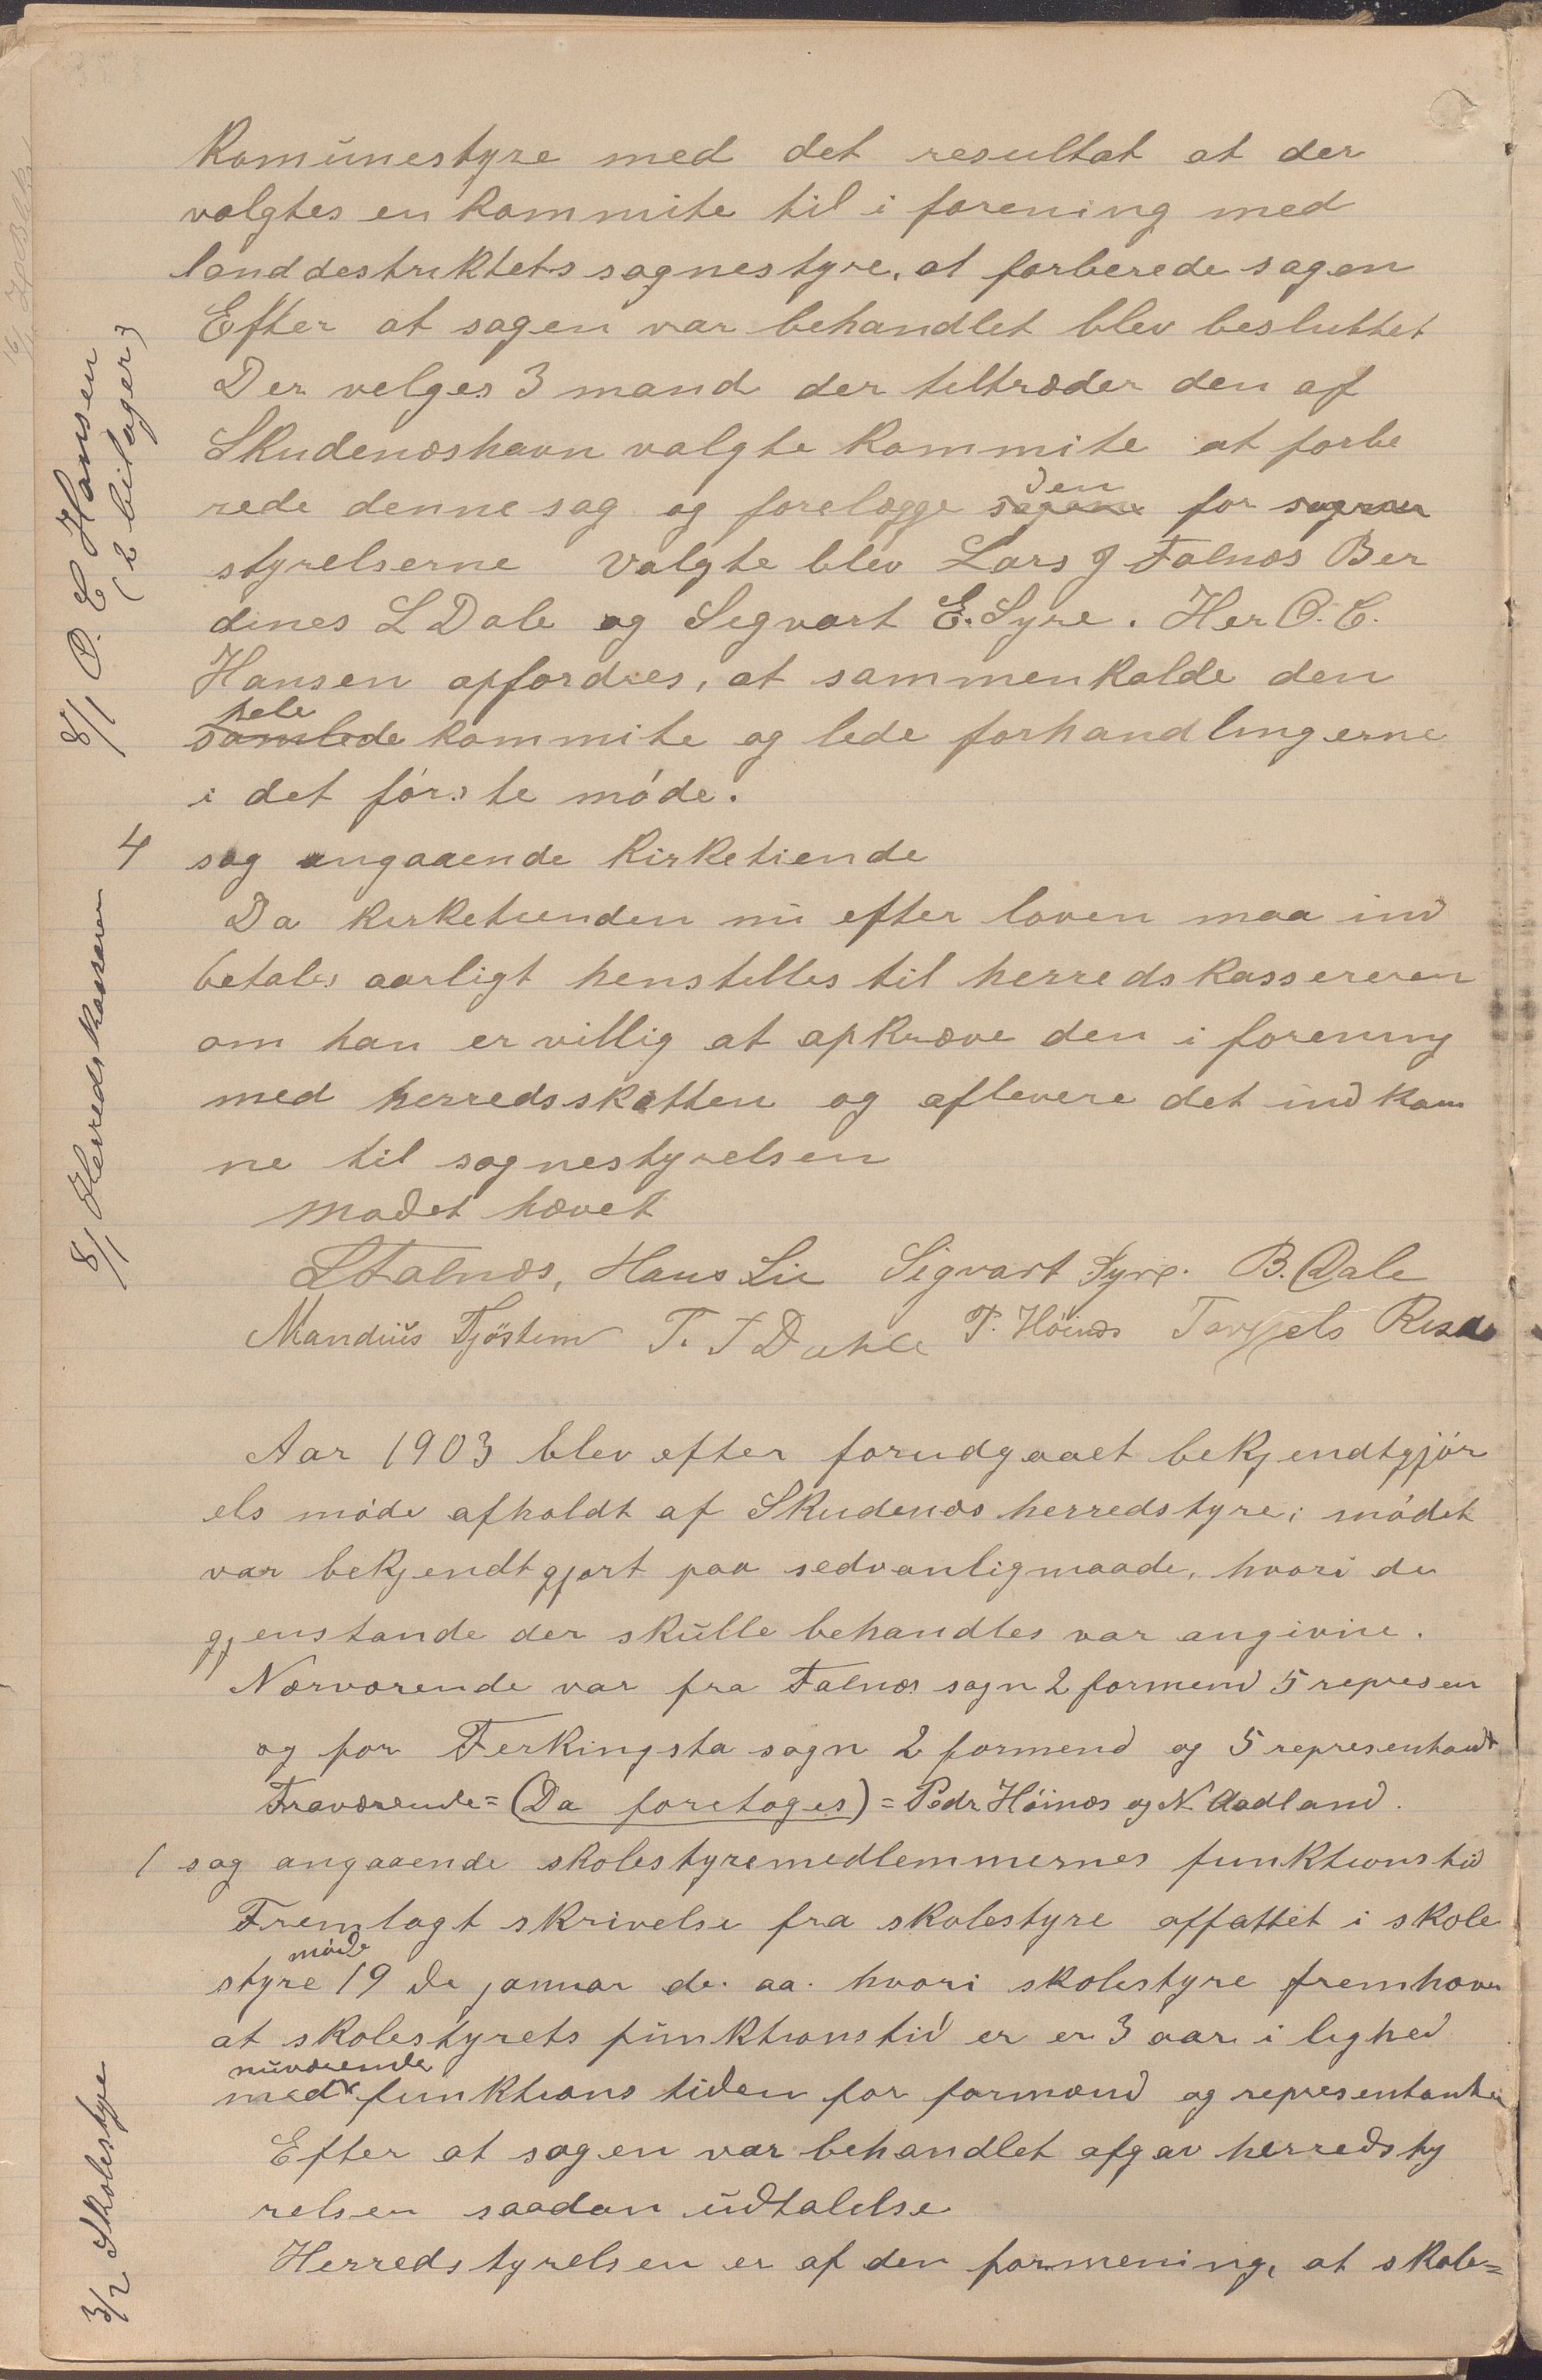 Komunestyre med det resultat at der
valgtes en kommite til i forening med
landdestriktets sognestyre, at forberede sagen
Efter at sagen var behandlet blev besluttet
Der velges 3 mand der teltræder den af
Skudenæshavn valgte kommite at forbe
rede denne sag og forelægge den for
styrelserne valgte blev Lars J Falnæs Ber
dines L Dale og Segvart E. Syre. Her O. C.
Hansen opfordres, at sammenkalde den
hele
samlede kommite og lede forhandlingerne
i det förste möde.
4 sag angaaende Kirketiende
Da kerketienden nu efter loven maa ind
betales aarligt henstilles til herredskassereren
om han er villig at opkræve den i forening
med herredsskatten og aflevere det indkom
ne til sognestyrelsen
Mødet hævet
L Falnæs, Hans Lie Sigvart Syre. B. Dale
Mandius Tjöstem T. T Dahle P. Höinæs Torgels Resa
Aar 1903 blev efter forudgaaet bekjendtgjör
els möde afholdt af Skudenæs herredstyre; mödet
var bekjendtgjort paa sedvanligmaade, hvori de
gjenstande der skulle behandles var angivne.
Nærværende var fra Falnæs sogn 2 formend 5 represen
og for Ferkingsta sogn 2 formend og 5 representant
Fraværende = (Da foretoges) = Pedr Höinæs og N Aadland.
1 sag angaaende skolestyremedlemmernes funktionstid
Fremlagt skrivelse fra skolestyre affattet i skole
möde
styre 19 de januar de. aa. hvori skolestyre fremhæver
at skolestyrets funktionstid er er 3 aar i leghed
nuværende
med funktionstiden for formænd og representanter
Efter at sagen var behandlet afgav herredsty
relsen saadan udtalelse
Herredstyrelsen er af den formening, at skole=
8/1 O. C Hansen
(2 bilager)
8/1 Herredskasseren
3/2 Skolestyre